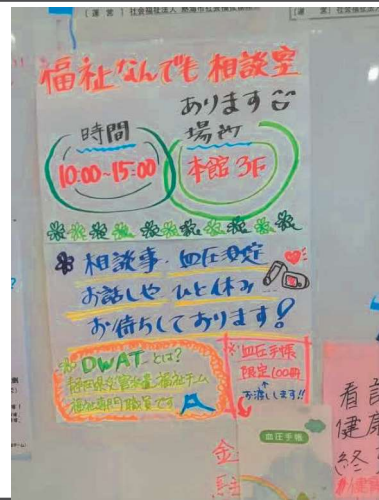 〔運 営〕社会福祉法人
福祉なんでも相談室
あります
時間
10:00~15:00
場所
本館 3F
相談事・血圧測定
お話しや ひと休み
お待ちしております!
DWATとは?
静岡県災害派遣福祉チーム
福祉専門職員です
※血圧手帳
限定100冊
↑
お渡しします!!
血圧手帳
看
健康
終